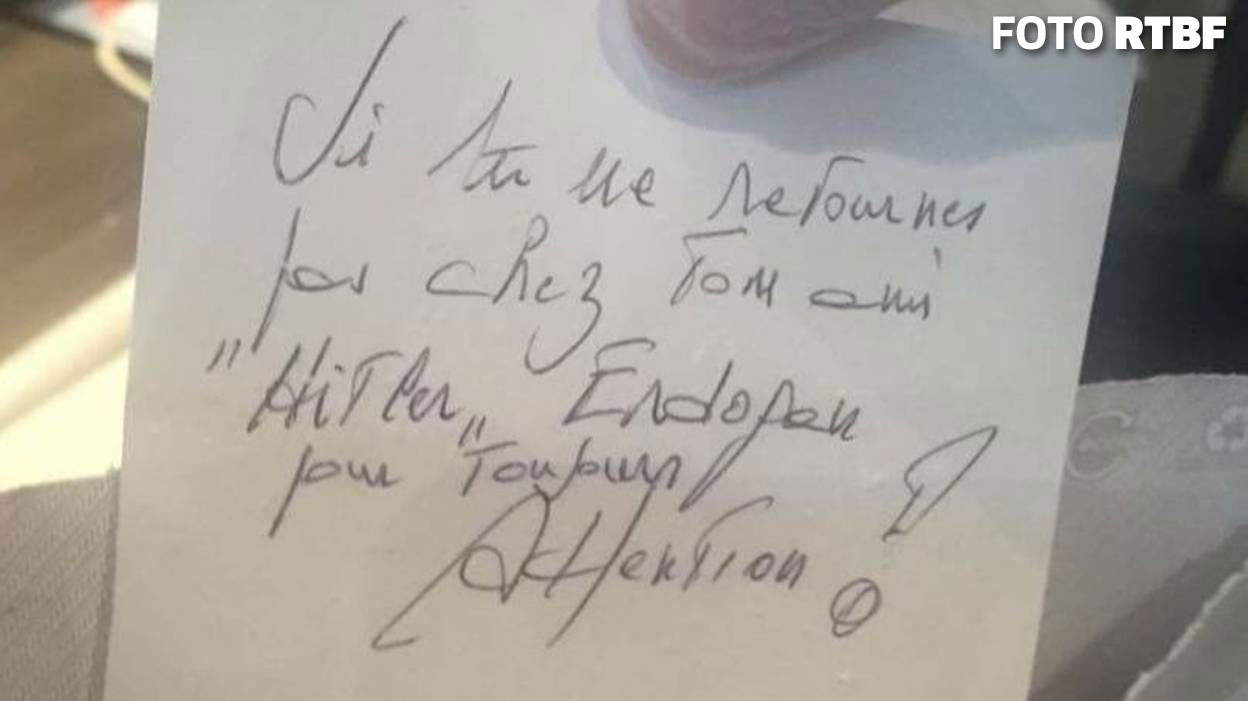 FOTO RTBF
Si tu ne retournes
pas chez ton ami
"Hitler" Erdogan
pour Toujours
Attention !